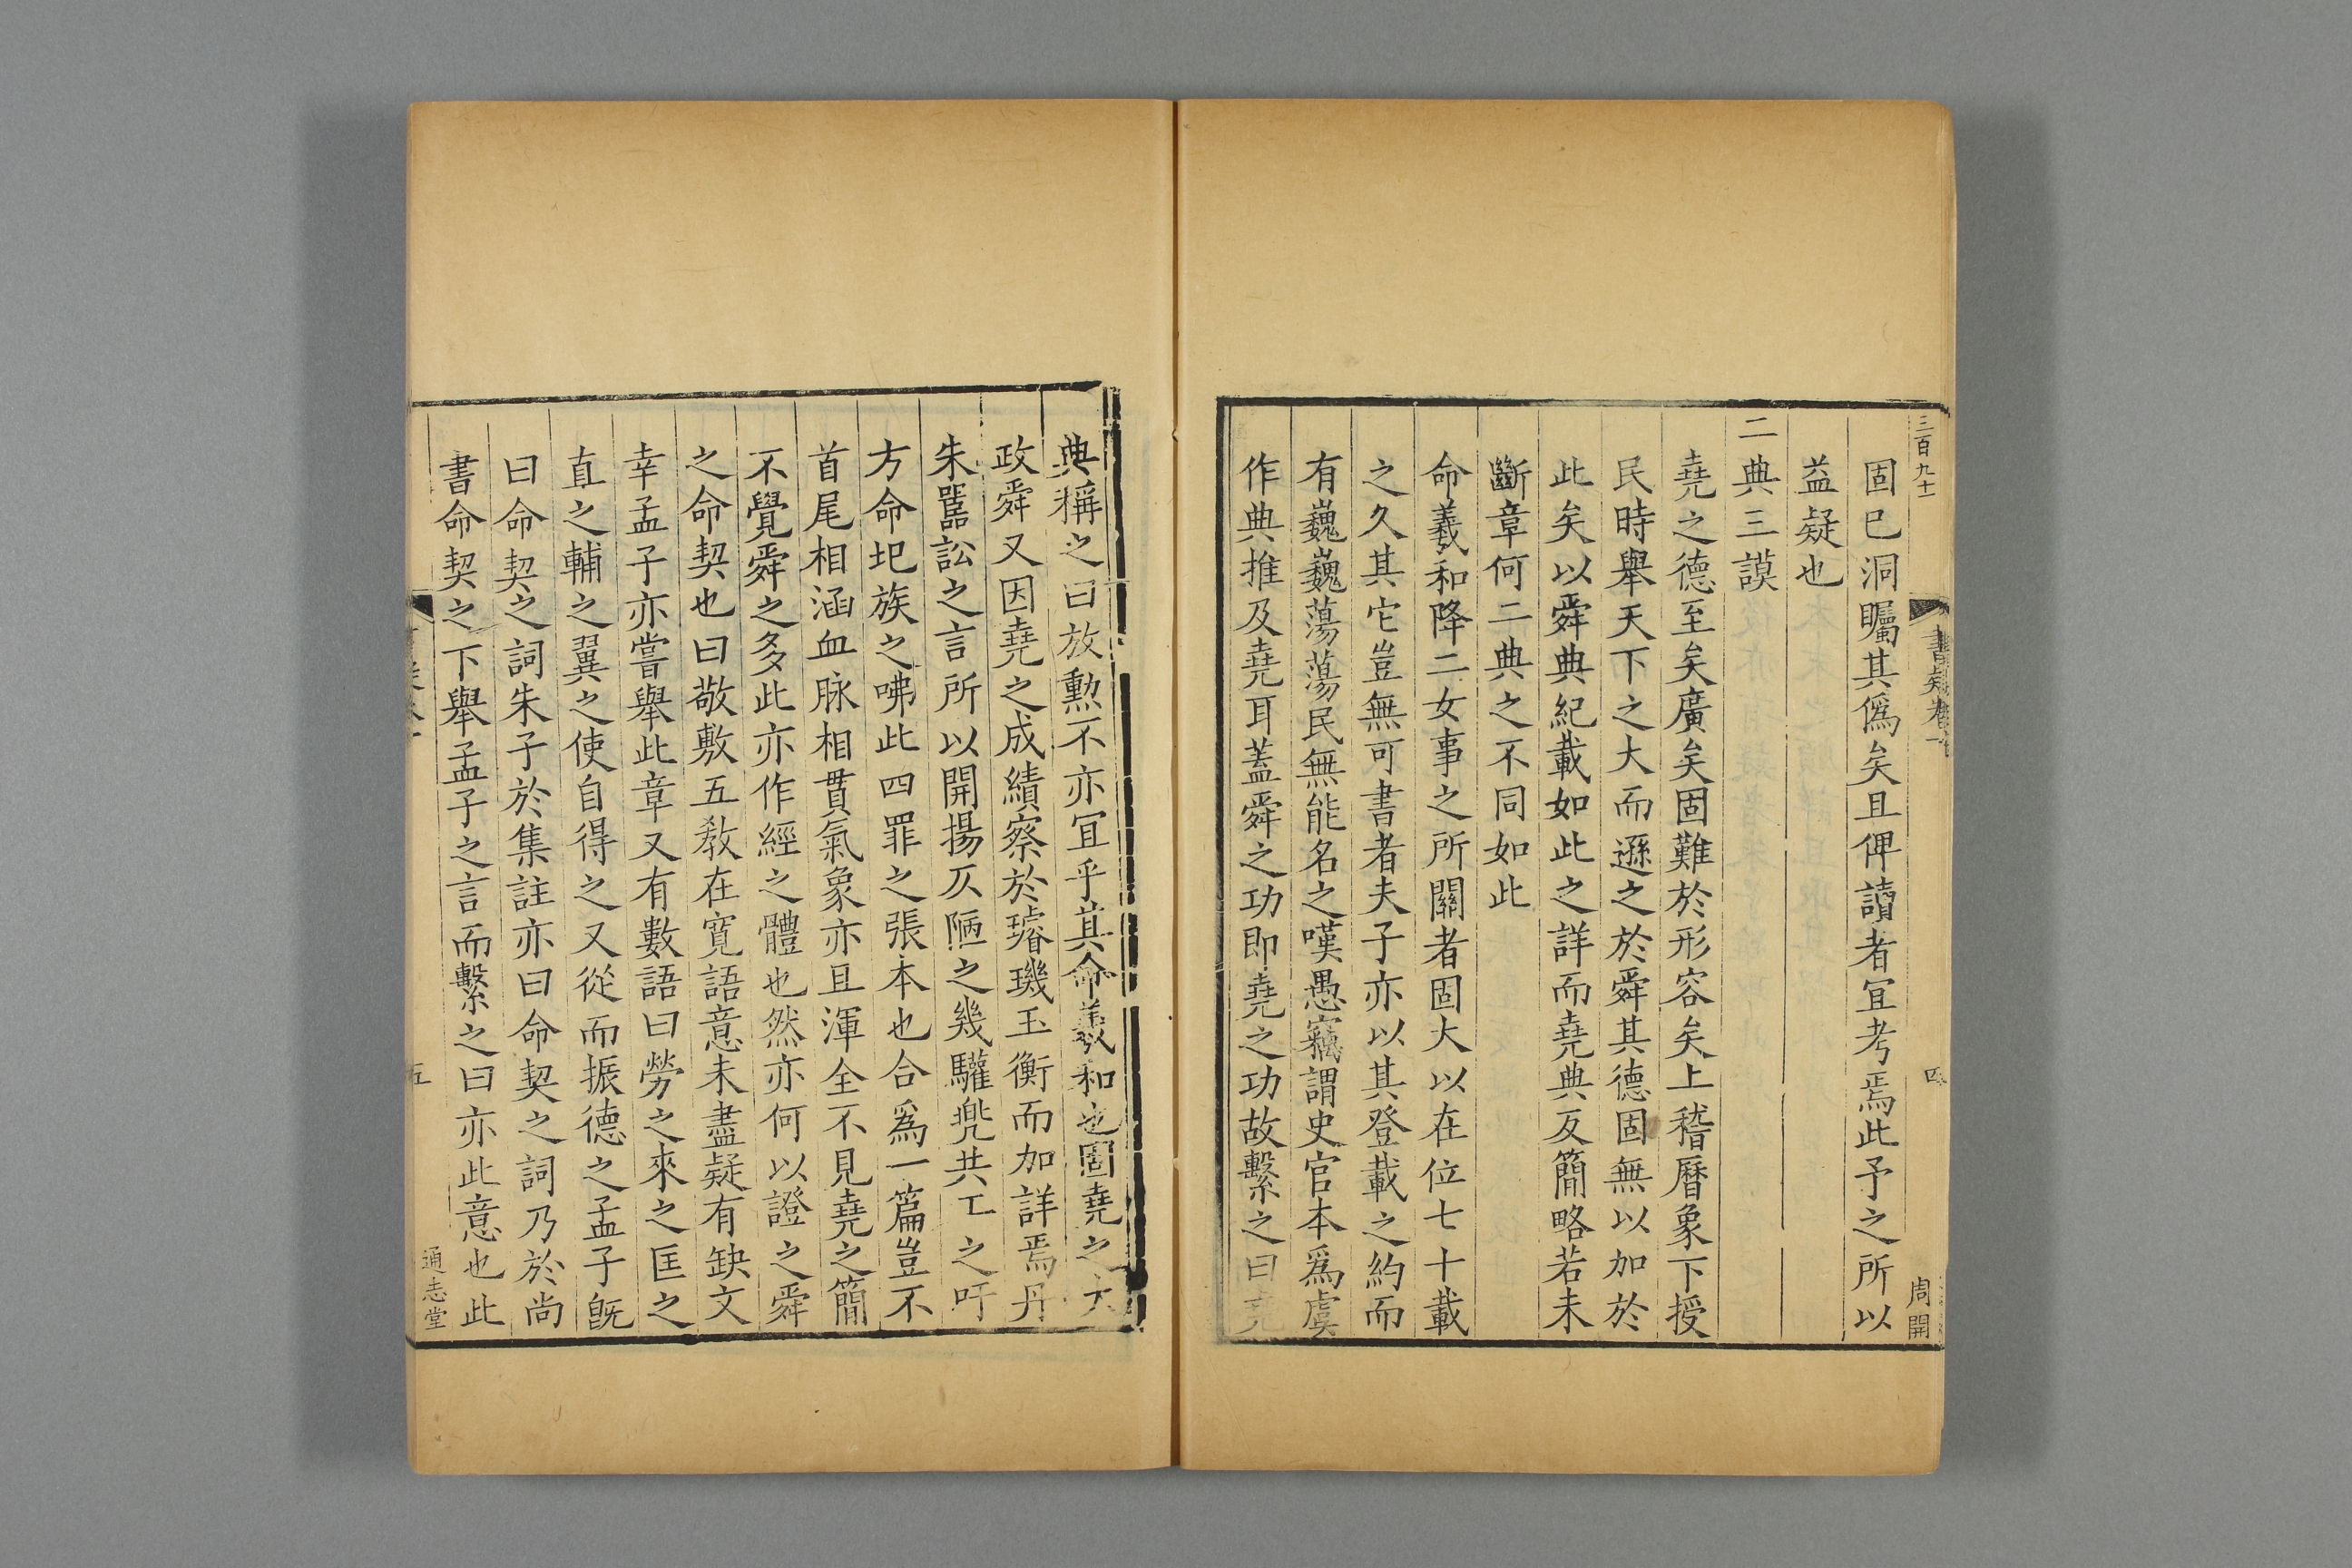 三百九十
書疑卷一
四
周開
固已洞矚其僞矣且俾讀者宜考焉此予之所以
益疑也
二典三謨
堯之德至矣廣矣固難於形容矣上稽曆象下授
民時舉天下之大而遜之於舜其德固無以加於
此矣以舜典紀載如此之詳而堯典反簡略若未
斷章何二典之不同如此
命羲和降二女事之所關者固大以在位七十載
之久其它豈無可書者夫子亦以其登載之約而
有巍巍蕩蕩民無能名之嘆愚竊謂史官本爲虞
作典推及堯耳蓋舜之功即堯之功故繫之曰堯
典稱之曰放勲不亦宜乎其命羲和也固堯之大
政舜又因堯之成績察於璿璣玉衡而加詳焉丹
朱嚚訟之言所以開揚仄陋之幾驩兜共工之吁
方命圯族之咈此四罪之張本也合爲一篇豈不
首尾相涵血脉相貫氣象亦且渾全不見堯之簡
不覺舜之多此亦作經之體也然亦何以證之舜
之命契也曰敬敷五敎在寬語意未盡疑有缺文
幸孟子亦嘗舉此章又有數語曰勞之來之匡之
直之輔之翼之使自得之又從而振德之孟子旣
曰命契之詞朱子於集註亦曰命契之詞乃於尚
書命契之下舉孟子之言而繫之曰亦此意也此
五
通志堂